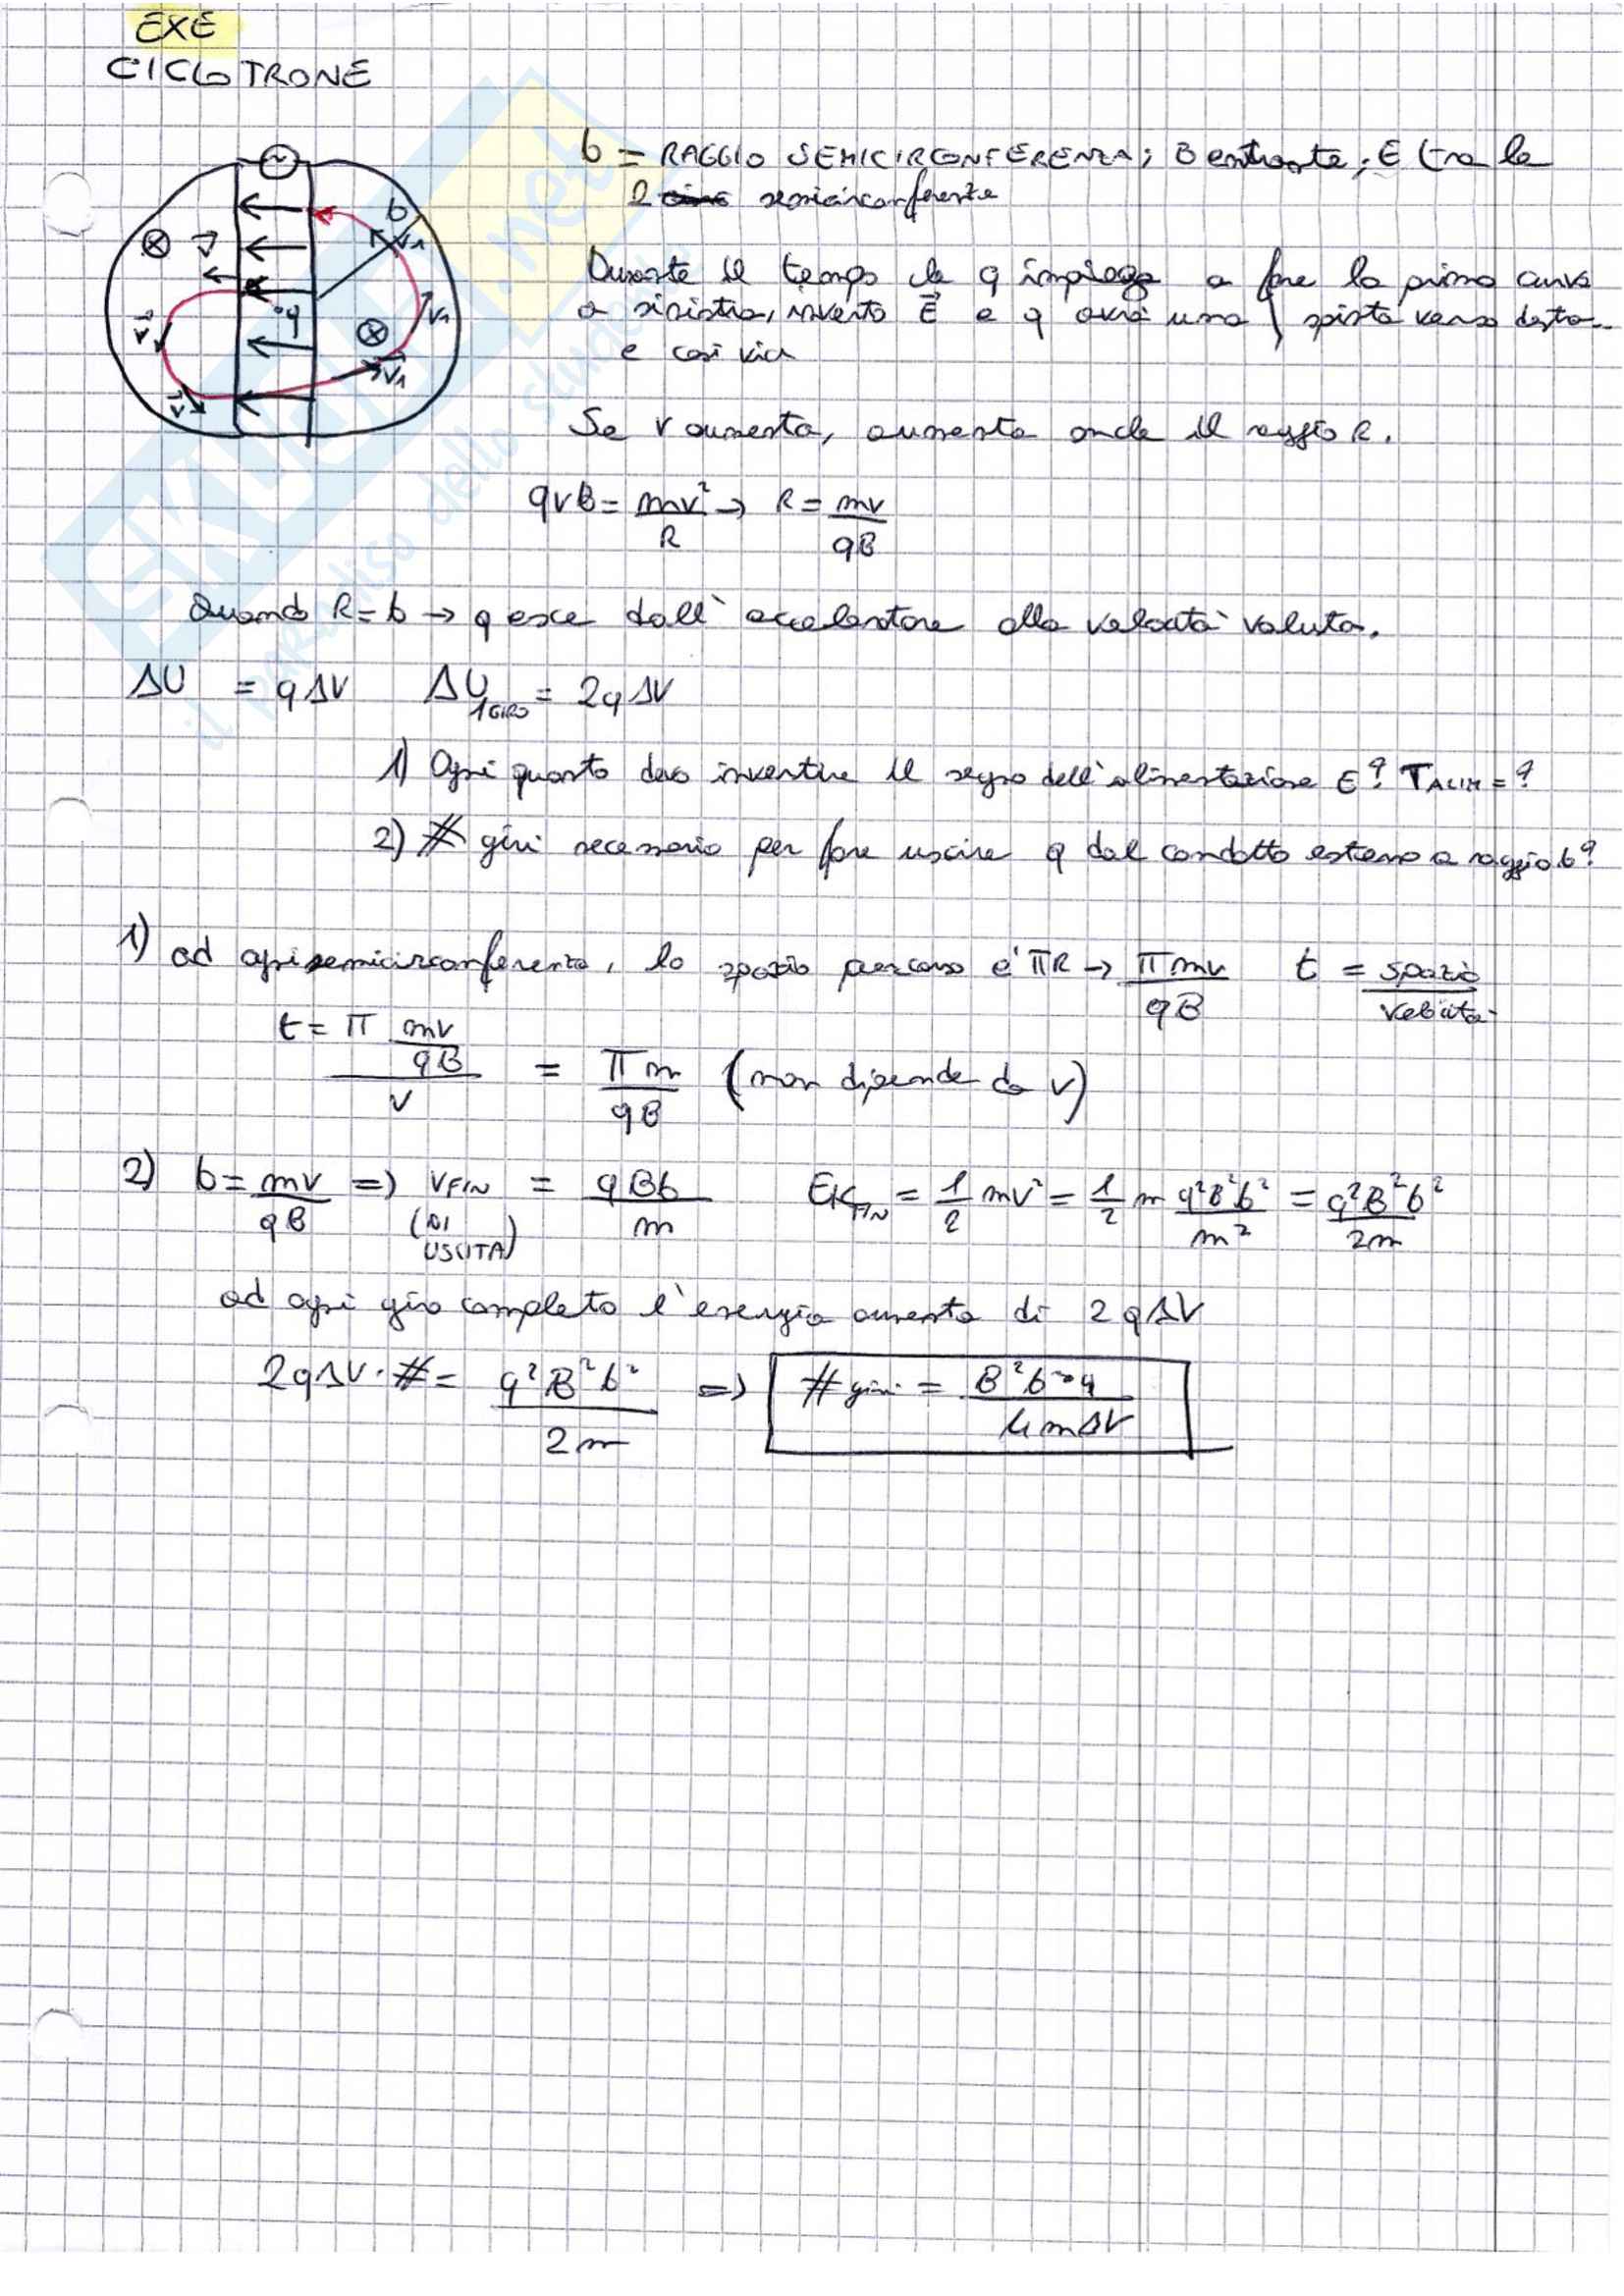 EXE
CICLOTRONE
b = RAGGIO SEMICIRCONFERENZA; B entrante; E tra le
2 semicirconferenze
Durante il tempo che q impiega a fare la prima curva
a sinistra, inverto E⃗ e q avrà una spinta verso destra...
e così via
Se v aumenta, aumenta anche il raggio R.
qvB = mv²/R → R = mv/qB
Quando R = b → q esce dall'acceleratore alla velocità voluta.
ΔU = qΔV ΔU 1GIRO = 2qΔV
1) Ogni quanto devo invertire il segno dell'alimentazione E? T ALIM = ?
2) # giri necessario per fare uscire q dal condotto esterno a raggio b?
1) ad ogni semicirconferenza, lo spazio percorso è πR → πmv/qB t = spazio/velocità
t = π mv/qB / v = πm/qB (non dipende da v)
2) b = mv/qB => v FIN (DI USCITA) = qBb/m EK FIN = 1/2 mv² = 1/2 m q²B²b²/m² = q²B²b²/2m
ad ogni giro completo l'energia aumenta di 2qΔV
2qΔV · # = q²B²b²/2m => # giri = B²b²q/4mΔV
b
q
v⃗
v⃗
v⃗
v₁
v₁
v⃗₁
SKUOLA.net
il paradiso dello studente